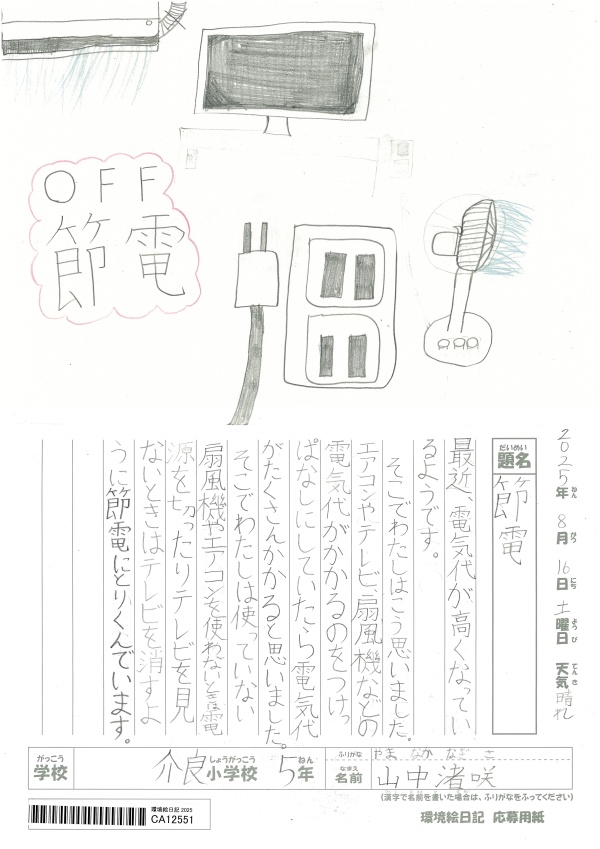 OFF
節電
2025年 8月 16日 土曜日 天気 晴れ
ねん がつ にち ようび てんき
だいめい
題名
節電
最近、電気代が高くなってい
るようです。
そこでわたしはこう思いました。
エアコンやテレビ、扇風機などの
電気代がかかるのをつけっ
ぱなしにしていたら電気代
がたくさんかかると思いました。
そこでわたしは使っていない
扇風機やエアコンを使わないとき電
源を切ったりテレビを見
ないときはテレビを消すよ
うに節電にとりくんでいます。
がっこう しょうがっこう ねん
学校 介良小学校 5年
ふりがな やま なか なぎ さ
なまえ
名前 山中渚咲
(漢字で名前を書いた場合は、ふりがなをふってください)
環境絵日記 応募用紙
環境絵日記 2025
CA12551